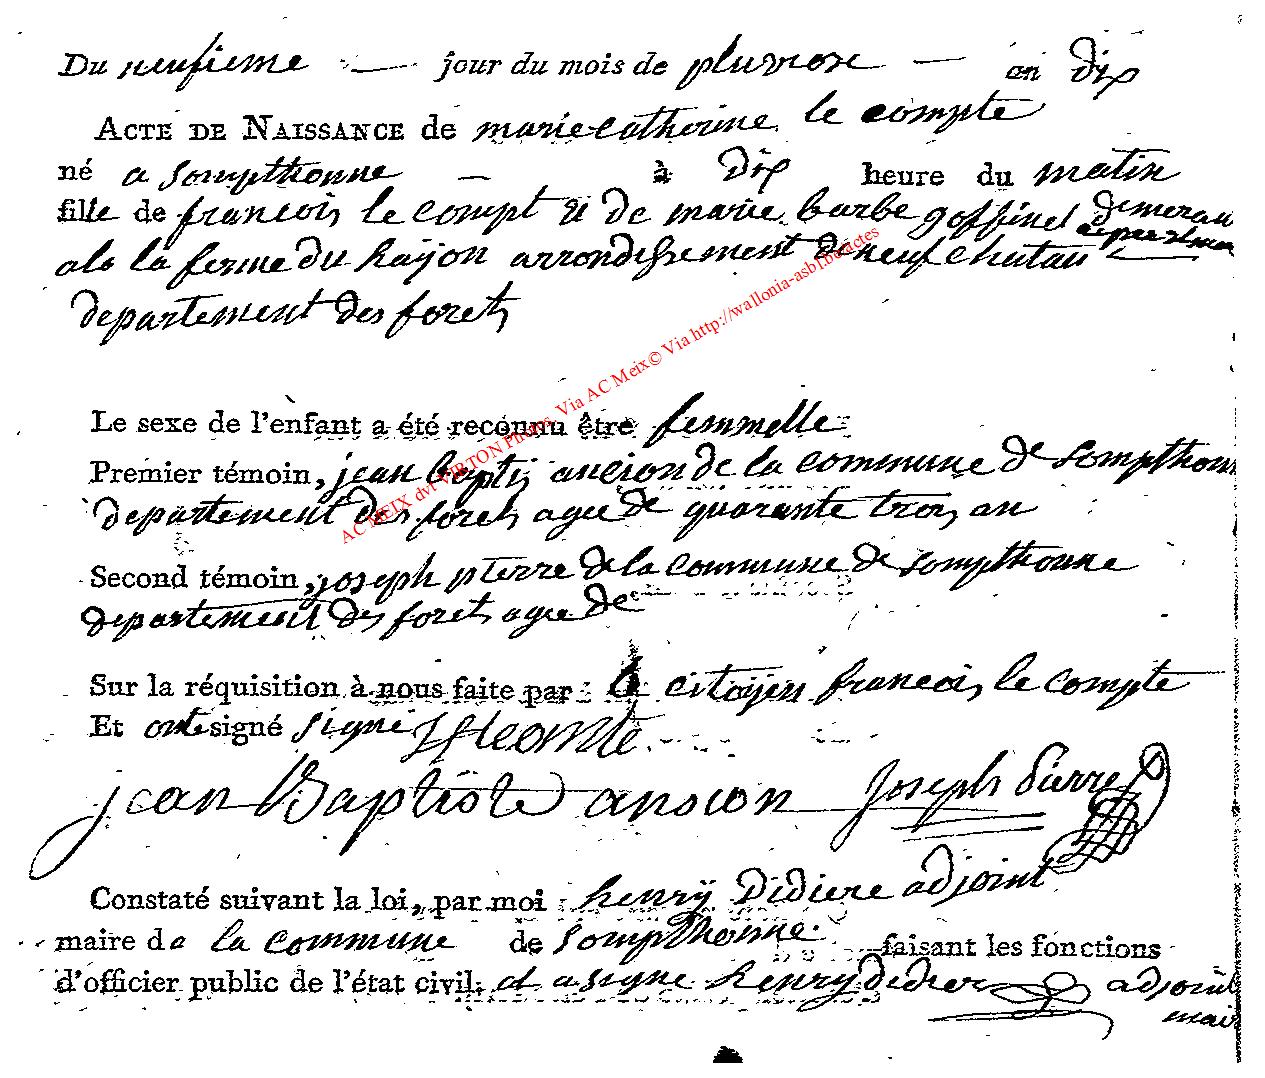 Du neufieme jour du mois de pluviose an dix
ACTE DE NAISSANCE de marie catherine le compte
né a sompthonne à dix heure du matin
fille de francois le compt et de marie barbe goffinet demeurau
als la ferme du hayon arrondissement de neufchatau
departement des forets
Le sexe de l'enfant a été reconnu être femmelle
Premier témoin, jean bapti ancion de la commune de sompthonn
departement des forets agee de quarante trois an
Second témoin, joseph pierre de la commune de sompthonne
departement des forets agee de
Sur la réquisition à nous faite par le citoyen francois le compte
Et ont signé signé
jean Baptiste ansion Joseph Pierre
Constaté suivant la loi, par moi henry Didiere adjoint
maire de la commune de sompthonne faisant les fonctions
d'officier public de l'état civil, et a signe henry didier adjoint
mair
AC MEIX dvt VIRTON Photos, Via AC Meix© Via http://wallonia-asbl.be/actes